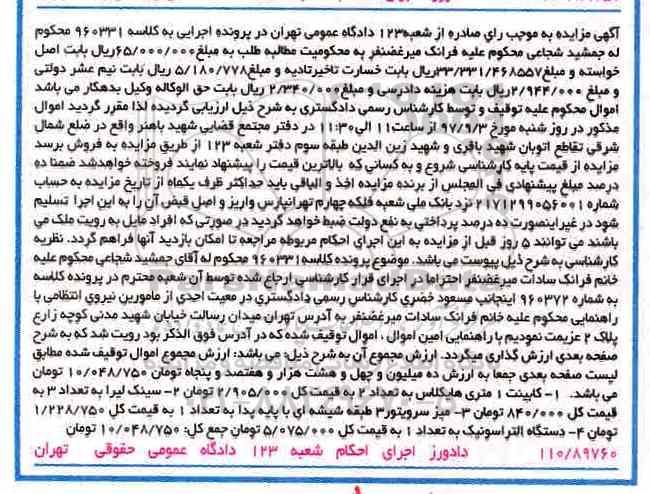 آگهی مزایده به موجب رای صادره از شعبه۱۲۳ دادگاه عمومی تهران در پرونده اجرایی به کلاسه ۹۶۰۳۳۱ محکوم
له جمشید شجاعی محکوم علیه فرانک میرغضنفر به محکومیت مطالبه طلب به مبلغ۶۵/۰۰۰/۰۰۰ریال بابت اصل
خواسته و مبلغ۳۳/۳۳۱/۴۶۸۵۵۷ریال بابت خسارت تاخیرتادیه و مبلغ۵/۱۸۰/۷۷۸ ریال بابت نیم عشر دولتی
و مبلغ ۲/۹۴۴/۰۰۰ریال بابت هزینه دادرسی و مبلغ۲/۳۴۰/۰۰۰ ریال بابت حق الوکاله وکیل بدهکار می باشد
اموال محکوم علیه توقیف و توسط کارشناس رسمی دادگستری به شرح ذیل ارزیابی گردیده لذا مقرر گردید اموال
مذکور در روز شنبه مورخ ۹۷/۹/۳ از ساعت۱۱ الی۱۱:۳۰ در دفتر مجتمع قضایی شهید باهنر واقع در ضلع شمال
شرقی تقاطع اتوبان شهید باقری و شهید زین الدین طبقه سوم دفتر شعبه ۱۲۳ از طریق مزایده به فروش برسد
مزایده از قیمت پایه کارشناسی شروع و به کسانی که بالاترین قیمت را پیشنهاد نمایند فروخته خواهدشد ضمنا ده
درصد مبلغ پیشنهادی فی المجلس از برنده مزایده اخذ و الباقی باید حداکثر ظرف یکماه از تاریخ مزایده به حساب
شماره ۲۱۷۱۲۹۹۰۵۶۰۰۱ نزد بانک ملی شعبه فلکه چهارم تهرانپارس واریز و اصل قبض آن را به این اجرا تسلیم
شود در غیراینصورت ده درصد پرداختی به نفع دولت ضبط خواهد گردید در صورتی که افراد مایل به رویت ملک می
باشند می توانند ۵ روز قبل از مزایده به این اجرای احکام مربوطه مراجعه تا امکان بازدید آنها فراهم گردد. نظریه
کارشناسی به شرح ذیل پیوست می باشد. موضوع پرونده کلاسه۹۶۰۳۳۱ محکوم له آقای جمشید شجاعی محکوم علیه
خانم فرانک سادات میرغضنفر احتراما در اجرای قرار کارشناسی ارجاع شده توسط آن شعبه محترم در پرونده کلاسه
به شماره ۹۶۰۳۷۲ اینجانب مسعود خضری کارشناس رسمی دادگستری در معیت احدی از مامورین نیروی انتظامی با
راهنمایی محکوم علیه خانم فرانک سادات میرغضنفر به آدرس تهران میدان رسالت خیابان شهید مدنی کوچه زارع
پلاک ۲ عزیمت نمودیم با راهنمایی امین اموال ، اموال توقیف شده که در آدرس فوق الذکر بود رویت شد که به شرح
صفحه بعدی ارزش گذاری میگردد. ارزش مجموع آن به شرح ذیل: می باشد: ارزش مجموع اموال توقیف شده مطابق
لیست صفحه بعدی جمعا به ارزش ده میلیون و چهل و هشت هزار و هفتصد و پنجاه تومان ۱۰/۰۴۸/۷۵۰ تومان
می باشد. ۱- کابینت ۱ متری هایگلاس به تعداد ۲ به قیمت کل ۲/۱۰۵/۰۰۰ تومان ۲- سینک لیرا به تعداد ۳ به
قیمت کل ۸۴۰/۰۰۰ تومان ۳- میز سرویتور۳ طبقه شیشه ای با پایه پدا به تعداد ۱ به قیمت کل ۱/۲۲۸/۷۵۰
تومان ۴- دستگاه التراسونیک به تعداد ۱ به قیمت کل ۵/۰۷۵/۰۰۰ تومان جمع کل: ۱۰/۰۴۸/۷۵۰ تومان
۱۱۰/۸۹۷۶۰ دادورز اجرای احکام شعبه ۱۲۳ دادگاه عمومی حقوقی تهران